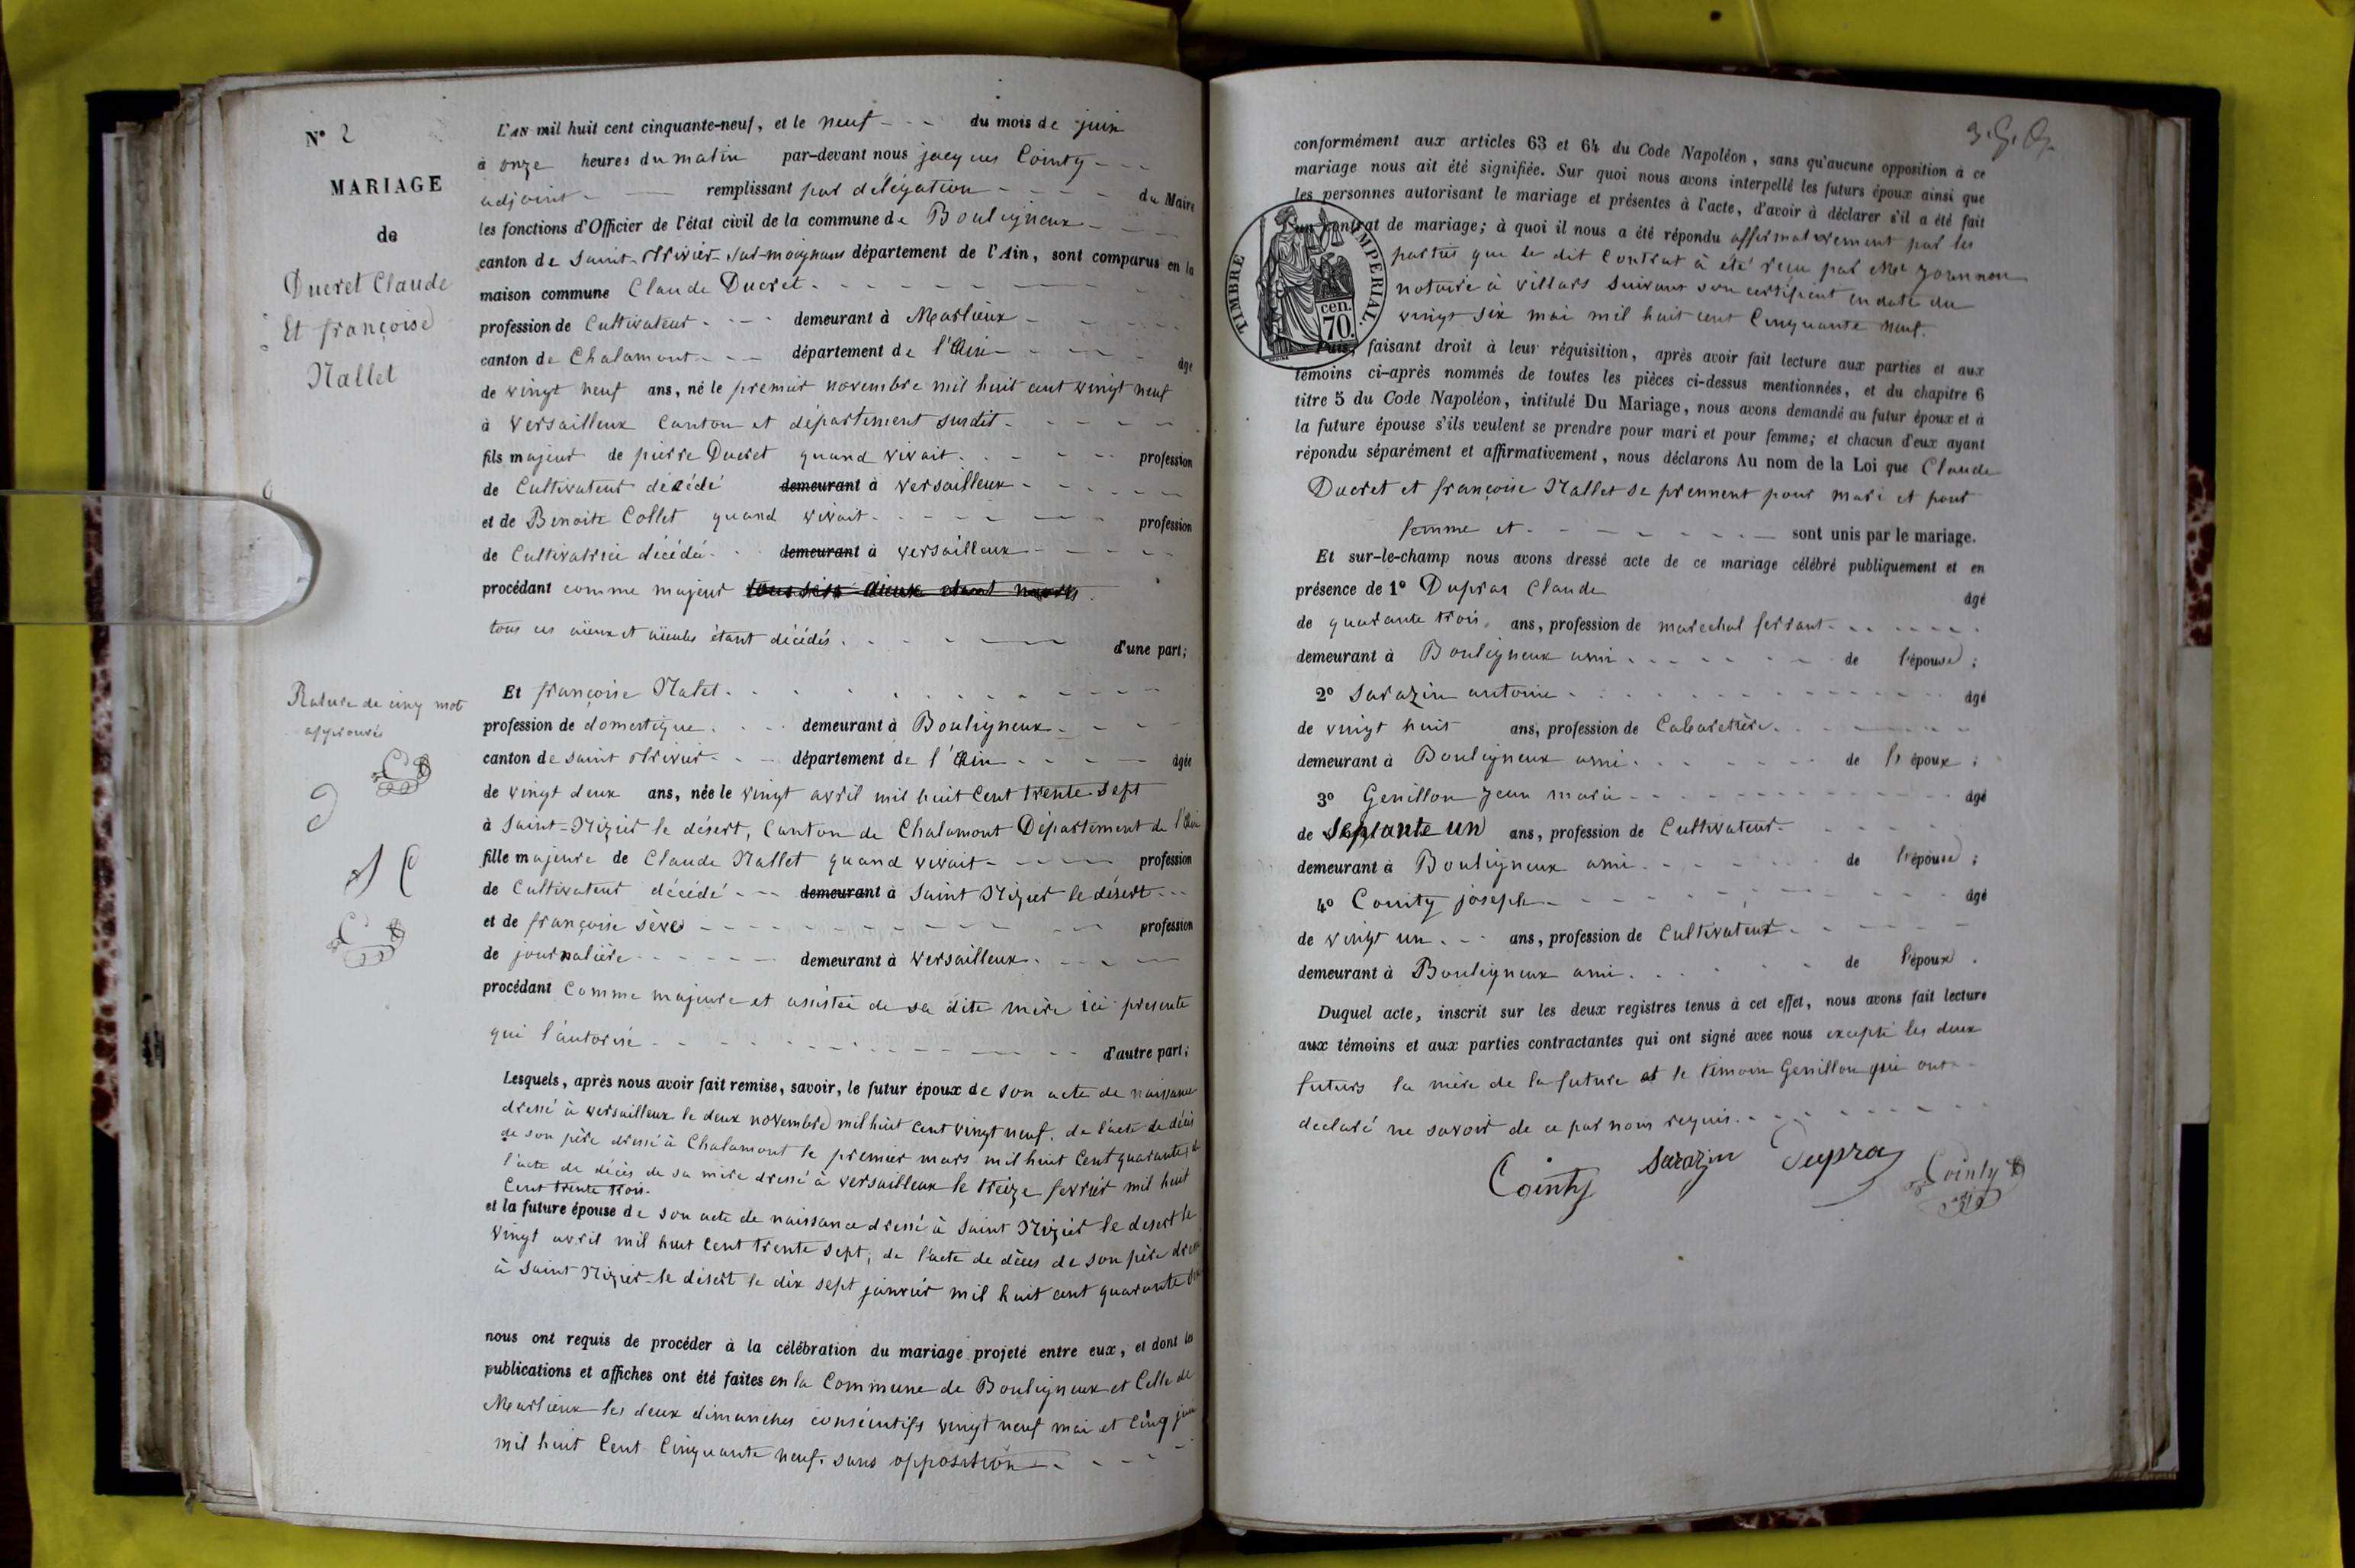 N° 2
MARIAGE
de
Ducret Claude
Et françoise
Nallet
L'AN mil huit cent cinquante-neuf, et le neuf du mois de juin
à onze heures du matin par-devant nous jacques Cointy
adjoint remplissant par délégation du Maire
les fonctions d'Officier de l'état civil de la commune de Bouligneux
canton de Saint-trivier-sur-moignans département de l'Ain, sont comparus en la
maison commune Claude Ducret
profession de Cultivateur demeurant à Marlieux
canton de Chalamont département de l'Ain âgé
de vingt neuf ans, né le premier novembre mil huit cent vingt neuf
à Versailleux Canton et département susdit
fils majeur de pierre Ducret quand vivait profession
de Cultivateur décédé demeurant à Versailleux
et de Benoite Collet quand vivait profession
de Cultivatrice décédée demeurant à Versailleux
procédant comme majeur
tous ces aïeux et aïeules étant décédés
d'une part;
Rature de cinq mots
approuvée
Et françoise Nalet
profession de domestique demeurant à Bouligneux
canton de saint trivier département de l'Ain âgée
de vingt deux ans, née le vingt avril mil huit Cent trente sept
à Saint-Nizier le désert, Canton de Chalamont Département de l'Ain
fille majeure de Claude Nallet quand vivait profession
de Cultivateur décédé demeurant à Saint Nizier le désert
et de françoise Sève profession
de journalière demeurant à Versailleux
procédant Comme majeure et assistée de sa dite mère ici presente
qui l'autorise
d'autre part;
Lesquels, après nous avoir fait remise, savoir, le futur époux de son acte de naissance
dressé à versailleux le deux novembre mil huit Cent vingt neuf. de l'acte de décès
de son père dressé à Chalamont le premier mars mil huit Cent quarante, de
l'acte de décès de sa mère dressé à versailleux le treize fevrier mil huit
Cent trente trois.
et la future épouse de son acte de naissance dressé à Saint Nizier le desert le
Vingt avril mil huit Cent trente sept, de l'acte de décès de son père dressé
à Saint Nizier-le désert le dix sept janvier mil huit cent quarante
nous ont requis de procéder à la célébration du mariage projeté entre eux, et dont les
publications et affiches ont été faites en la Commune de Bouligneux et Celle de
Marlieux les deux dimanches consécutifs vingt neuf mai et Cinq juin
mil huit Cent Cinquante neuf. sans opposition
conformément aux articles 63 et 64 du Code Napoléon, sans qu'aucune opposition à ce
mariage nous ait été signifiée. Sur quoi nous avons interpellé les futurs époux ainsi que
les personnes autorisant le mariage et présentes à l'acte, d'avoir à déclarer s'il a été fait
un contrat de mariage; à quoi il nous a été répondu affirmativement par les
parties que le dit Contrat à été reçu par Me Joannon
notaire à villars Suivant son certificat en date du
vingt six mai mil huit cent Cinquante neuf.
TIMBRE IMPERIAL.
cen.
70.
Puis, faisant droit à leur réquisition, après avoir fait lecture aux parties et aux
témoins ci-après nommés de toutes les pièces ci-dessus mentionnées, et du chapitre 6
titre 5 du Code Napoléon, intitulé Du Mariage, nous avons demandé au futur époux et à
la future épouse s'ils veulent se prendre pour mari et pour femme; et chacun d'eux ayant
répondu séparément et affirmativement, nous déclarons Au nom de la Loi que Claude
Ducret et françoise Nallet se prennent pour mari et pour
femme et sont unis par le mariage.
Et sur-le-champ nous avons dressé acte de ce mariage célébré publiquement et en
présence de 1° Dupras Claude âgé
de quarante trois, ans, profession de marechal ferrant
demeurant à Bouligneux ami de l'épouse;
2° Sarazin antoine âgé
de vingt huit ans, profession de Cabaretière
demeurant à Bouligneux ami de l'époux;
3° Genillon Jean marie âgé
de Septante un ans, profession de Cultivateur
demeurant à Bouligneux ami de l'épouse;
4° Cointy joseph âgé
de vingt un ans, profession de Cultivateur
demeurant à Bouligneux ami de l'époux.
Duquel acte, inscrit sur les deux registres tenus à cet effet, nous avons fait lecture
aux témoins et aux parties contractantes qui ont signé avec nous excepté les deux
futurs la mère de la future et le témoin Genillon qui ont
declaré ne savoir de ce par nous requis.
Cointy Sarazin Dupras Cointy
adj